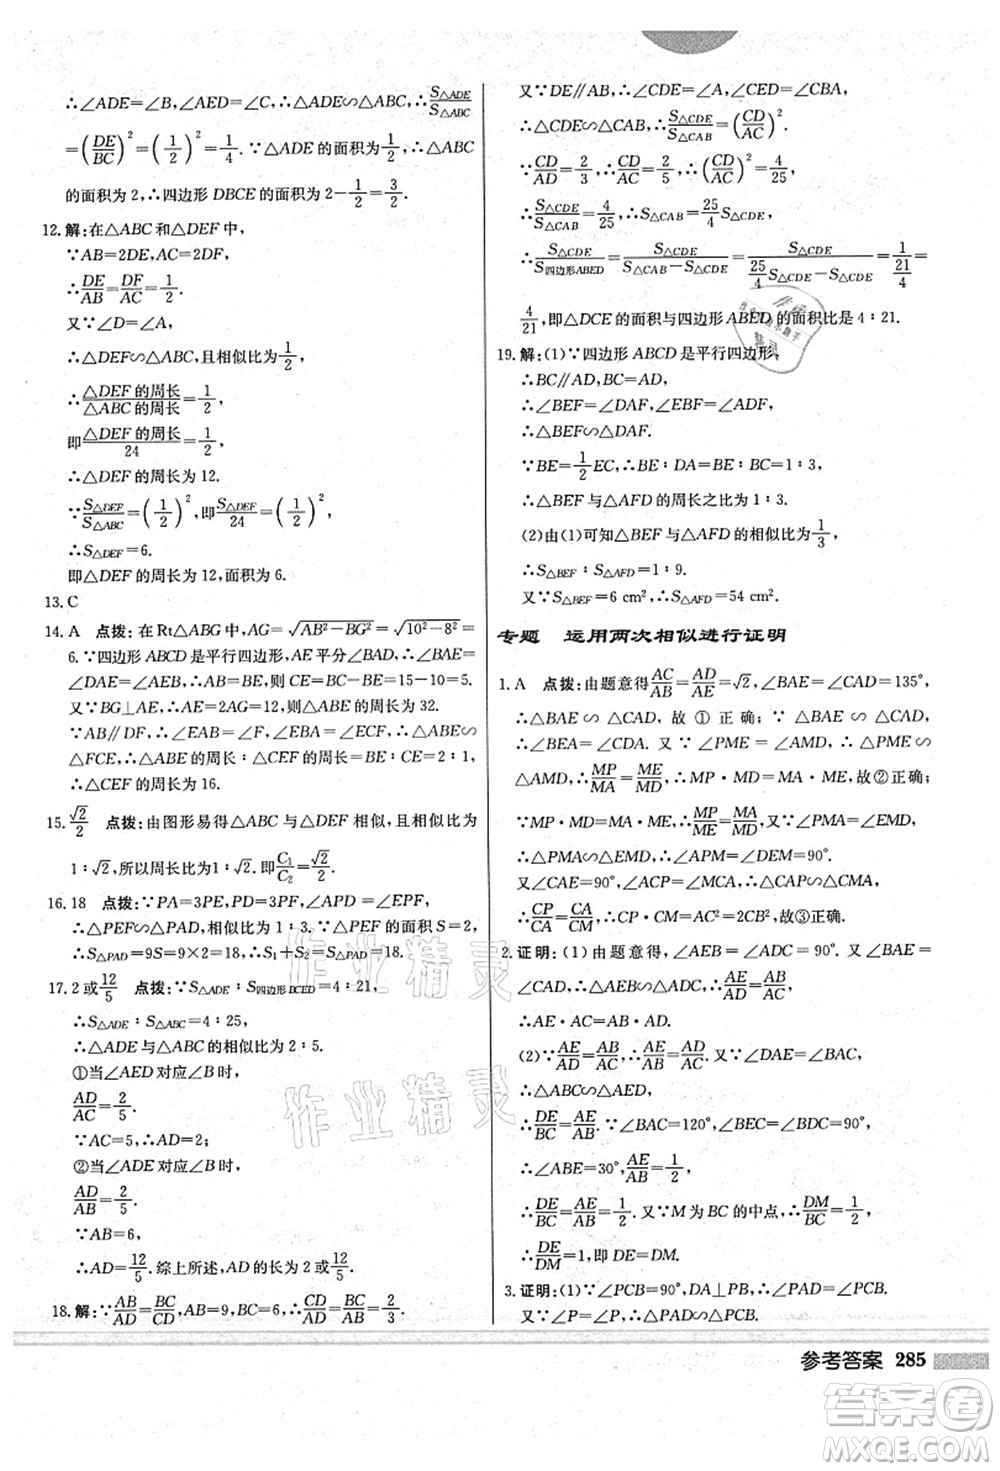 ∴∠ADE=∠B,∠AED=∠C,∴△ADE∽△ABC,∴S△ADE/S△ABC
=(DE/BC)²=(1/2)²=1/4.∵△ADE的面积为1/2,∴△ABC
的面积为2,∴四边形DBCE的面积是2-1/2=3/2.
12.解:在△ABC和△DEF中,
∵AB=2DE,AC=2DF,
∴DE/AB=DF/AC=1/2.
又∵∠D=∠A,
∴△DEF∽△ABC,且相似比为1/2,
∴△DEF的周长/△ABC的周长=1/2,
即△DEF的周长/24=1/2,
∴△DEF的周长为12.
∵S△DEF/S△ABC=(1/2)²,即S△DEF/24=(1/2)²,
∴S△DEF=6.
即△DEF的周长为12,面积为6.
13.C
14.A 点拨:在Rt△ABG中,AG=√(AB²-BG²)=√(10²-8²)=
6.∵四边形ABCD是平行四边形,AE平分∠BAD,∴∠BAE
=∠DAE=∠AEB,∴AB=BE=10,∴CE=BC-BE=15-10=5.
∵BG⊥AE,∴AE=2AG=12,则△ABE的周长为32.
∵AB∥DF,∴∠EAB=∠F,∠EBA=∠FCE,∴△ABE∽
△FCE,∴△ABE的周长:△CEF的周长=BE:CE=2:1,
∴△CEF的周长为16.
15.√2/2 点拨:由图形易得△ABC与△DEF相似,且相似比为
1:√2,所以周长比为1:√2.即C₁/C₂=√2/2.
16.18 点拨:∵PA=3PE,PD=3PF,∠APD=∠EPF,
∴△PEF∽△PAD,相似比为1:3.∵△PEF的面积S=2,
∴S△PAD=9S=9×2=18,∴S₁+S₂=S△PAD=18.
17.2或12/5 点拨:∵S△ADE:S四边形BCED=4:21,
∴S△ADE:S△ABC=4:25,
∴△ADE与△ABC的相似比为2:5.
①当∠AED对应∠B时,
AD/AC=2/5.
∵AC=5,∴AD=2;
②当∠ADE对应∠B时,
AD/AB=2/5.
∵AB=6,
∴AD=12/5.综上所述,AD的长为2或12/5.
18.解:∵AB/AD=BC/CD,AB=9,BC=6,∴CD/AD=BC/AB=2/3.
又∵DE∥AB,∴∠CDE=∠A,∠CED=∠CBA,
∴△CDE∽△CAB,∴S△CDE/S△CAB=(CD/AC)².
∵CD/AD=2/3,∴CD/AC=2/5,∴(CD/AC)²=4/25,
∴S△CDE/S△CAB=4/25,∴S△CAB=25/4S△CDE,
∴S△CDE/S四边形ABED=S△CDE/(S△CAB-S△CDE)=S△CDE/(25/4S△CDE-S△CDE)=1/(21/4)=
4/21,即△DCE的面积与四边形ABED的面积比是4:21.
19.解:(1)∵四边形ABCD是平行四边形,
∴BC∥AD,BC=AD,
∴∠BEF=∠DAF,∠EBF=∠ADF,
∴△BEF∽△DAF.
∵BE=1/2EC,∴BE:DA=BE:BC=1:3,
∴△BEF与△AFD的周长之比为1:3.
(2)由(1)可知△BEF与△AFD的相似比为1/3,
∴S△BEF:S△AFD=1:9.
又∵S△BEF=6 cm²,∴S△AFD=54 cm².
专题 运用两次相似进行证明
1.A 点拨:由题意得AC/AB=AD/AE=√2,∠BAE=∠CAD=135°,
∴△BAE∽△CAD,故①正确;∵△BAE∽△CAD,
∴∠BEA=∠CDA.又∵∠PME=∠AMD,∴△PME∽
△AMD,∴MP/MA=ME/MD,∴MP·MD=MA·ME,故②正确;
∵MP·MD=MA·ME,∴MP/ME=MA/MD.又∵∠PMA=∠EMD,
∴△PMA∽△EMD,∴∠APM=∠DEM=90°.
又∠CAE=90°,∠ACP=∠MCA,∴△CAP∽△CMA,
∴CP/CA=CA/CM,∴CA²=CP·CM=2CB²,故③正确.
2.证明:(1)由题意得,∠AEB=∠ADC=90°.又∵∠BAE=
∠CAD,∴△BAE∽△CAD,∴AE/AD=AB/AC,
∴AE·AC=AB·AD.
(2)∵AE/AD=AB/AC,∴AE/AB=AD/AC.又∵∠EAD=∠BAC,
∴△ABC∽△AED,
∴DE/BC=AE/AB.∵∠BAC=120°,∠BEC=∠BDC=90°,
∴∠ABE=30°,∴AE/AB=1/2,
∴DE/BC=AE/AB=1/2.又∵M为BC的中点,∴DM/BC=1/2,
∴DE/DM=1,即DE=DM.
3.证明:(1)∵∠PCB=90°,DA⊥PB,∴∠DAP=∠PCB.
又∵∠P=∠P,∴△PAD∽△PCB.
作业精灵
作业精灵
参考答案 285
答案卷
MXQE.COM